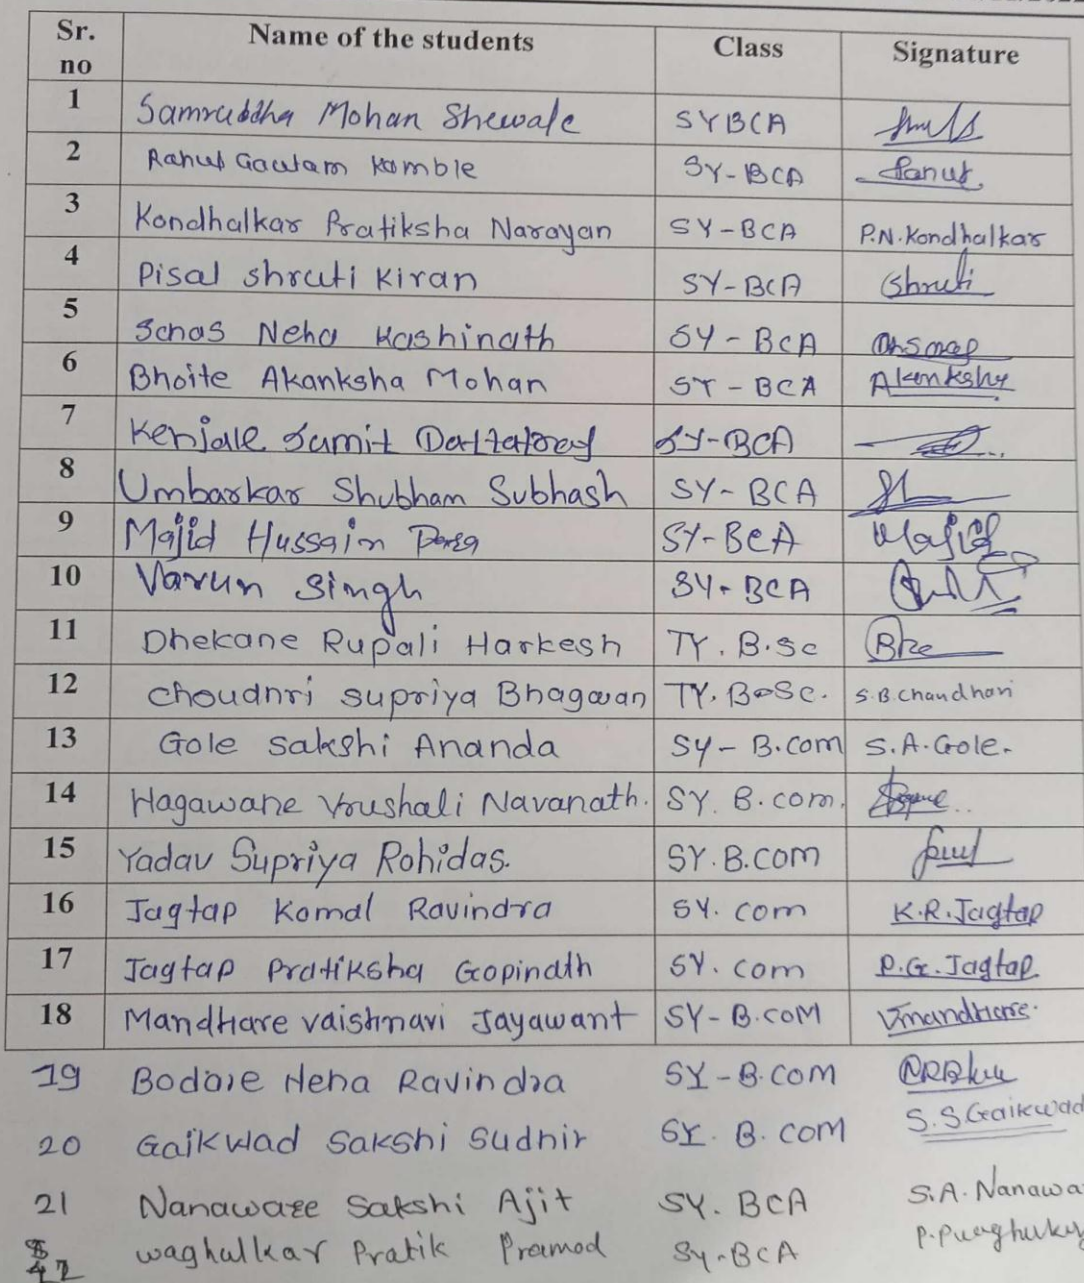 Sr. no Name of the students Class Signature
1 Samruddha Mohan Shewale SYBCA
2 Rahul Gautam Kamble SY-BCA
3 Kondhalkar Pratiksha Narayan SY-BCA P.N.Kondhalkar
4 Pisal shruti kiran SY-BCA Shruti
5 Sonas Neha Kashinath SY-BCA
6 Bhoite Akanksha Mohan SY-BCA Akanksha
7 Kenjale Sumit Dattatray SY-BCA
8 Umbarkar Shubham Subhash SY-BCA
9 Majid Hussain SY-BCA Majid
10 Varun Singh SY-BCA
11 Dhekane Rupali Harkesh TY.B.Sc
12 choudhri supriya Bhagawan TY.B.Sc. S.B.Chaudhari
13 Gole Sakshi Ananda SY-B.com S.A.Gole.
14 Hagawane Vrushali Navanath. SY.B.com.
15 Yadav Supriya Rohidas. SY.B.COM
16 Jagtap Komal Ravindra SY.com K.R.Jagtap
17 Jagtap Pratiksha Gopinath SY.com P.G.Jagtap
18 Mandhare vaishnavi Jayawant SY-B.COM Vmandhare.
19 Bodare Neha Ravindra SY-B.COM
20 Gaikwad Sakshi Sudhir SY.B.COM S.S.Gaikwad
21 Nanaware Sakshi Ajit SY.BCA S.A.Nanawa
waghulkar Pratik Pramod SY-BCA